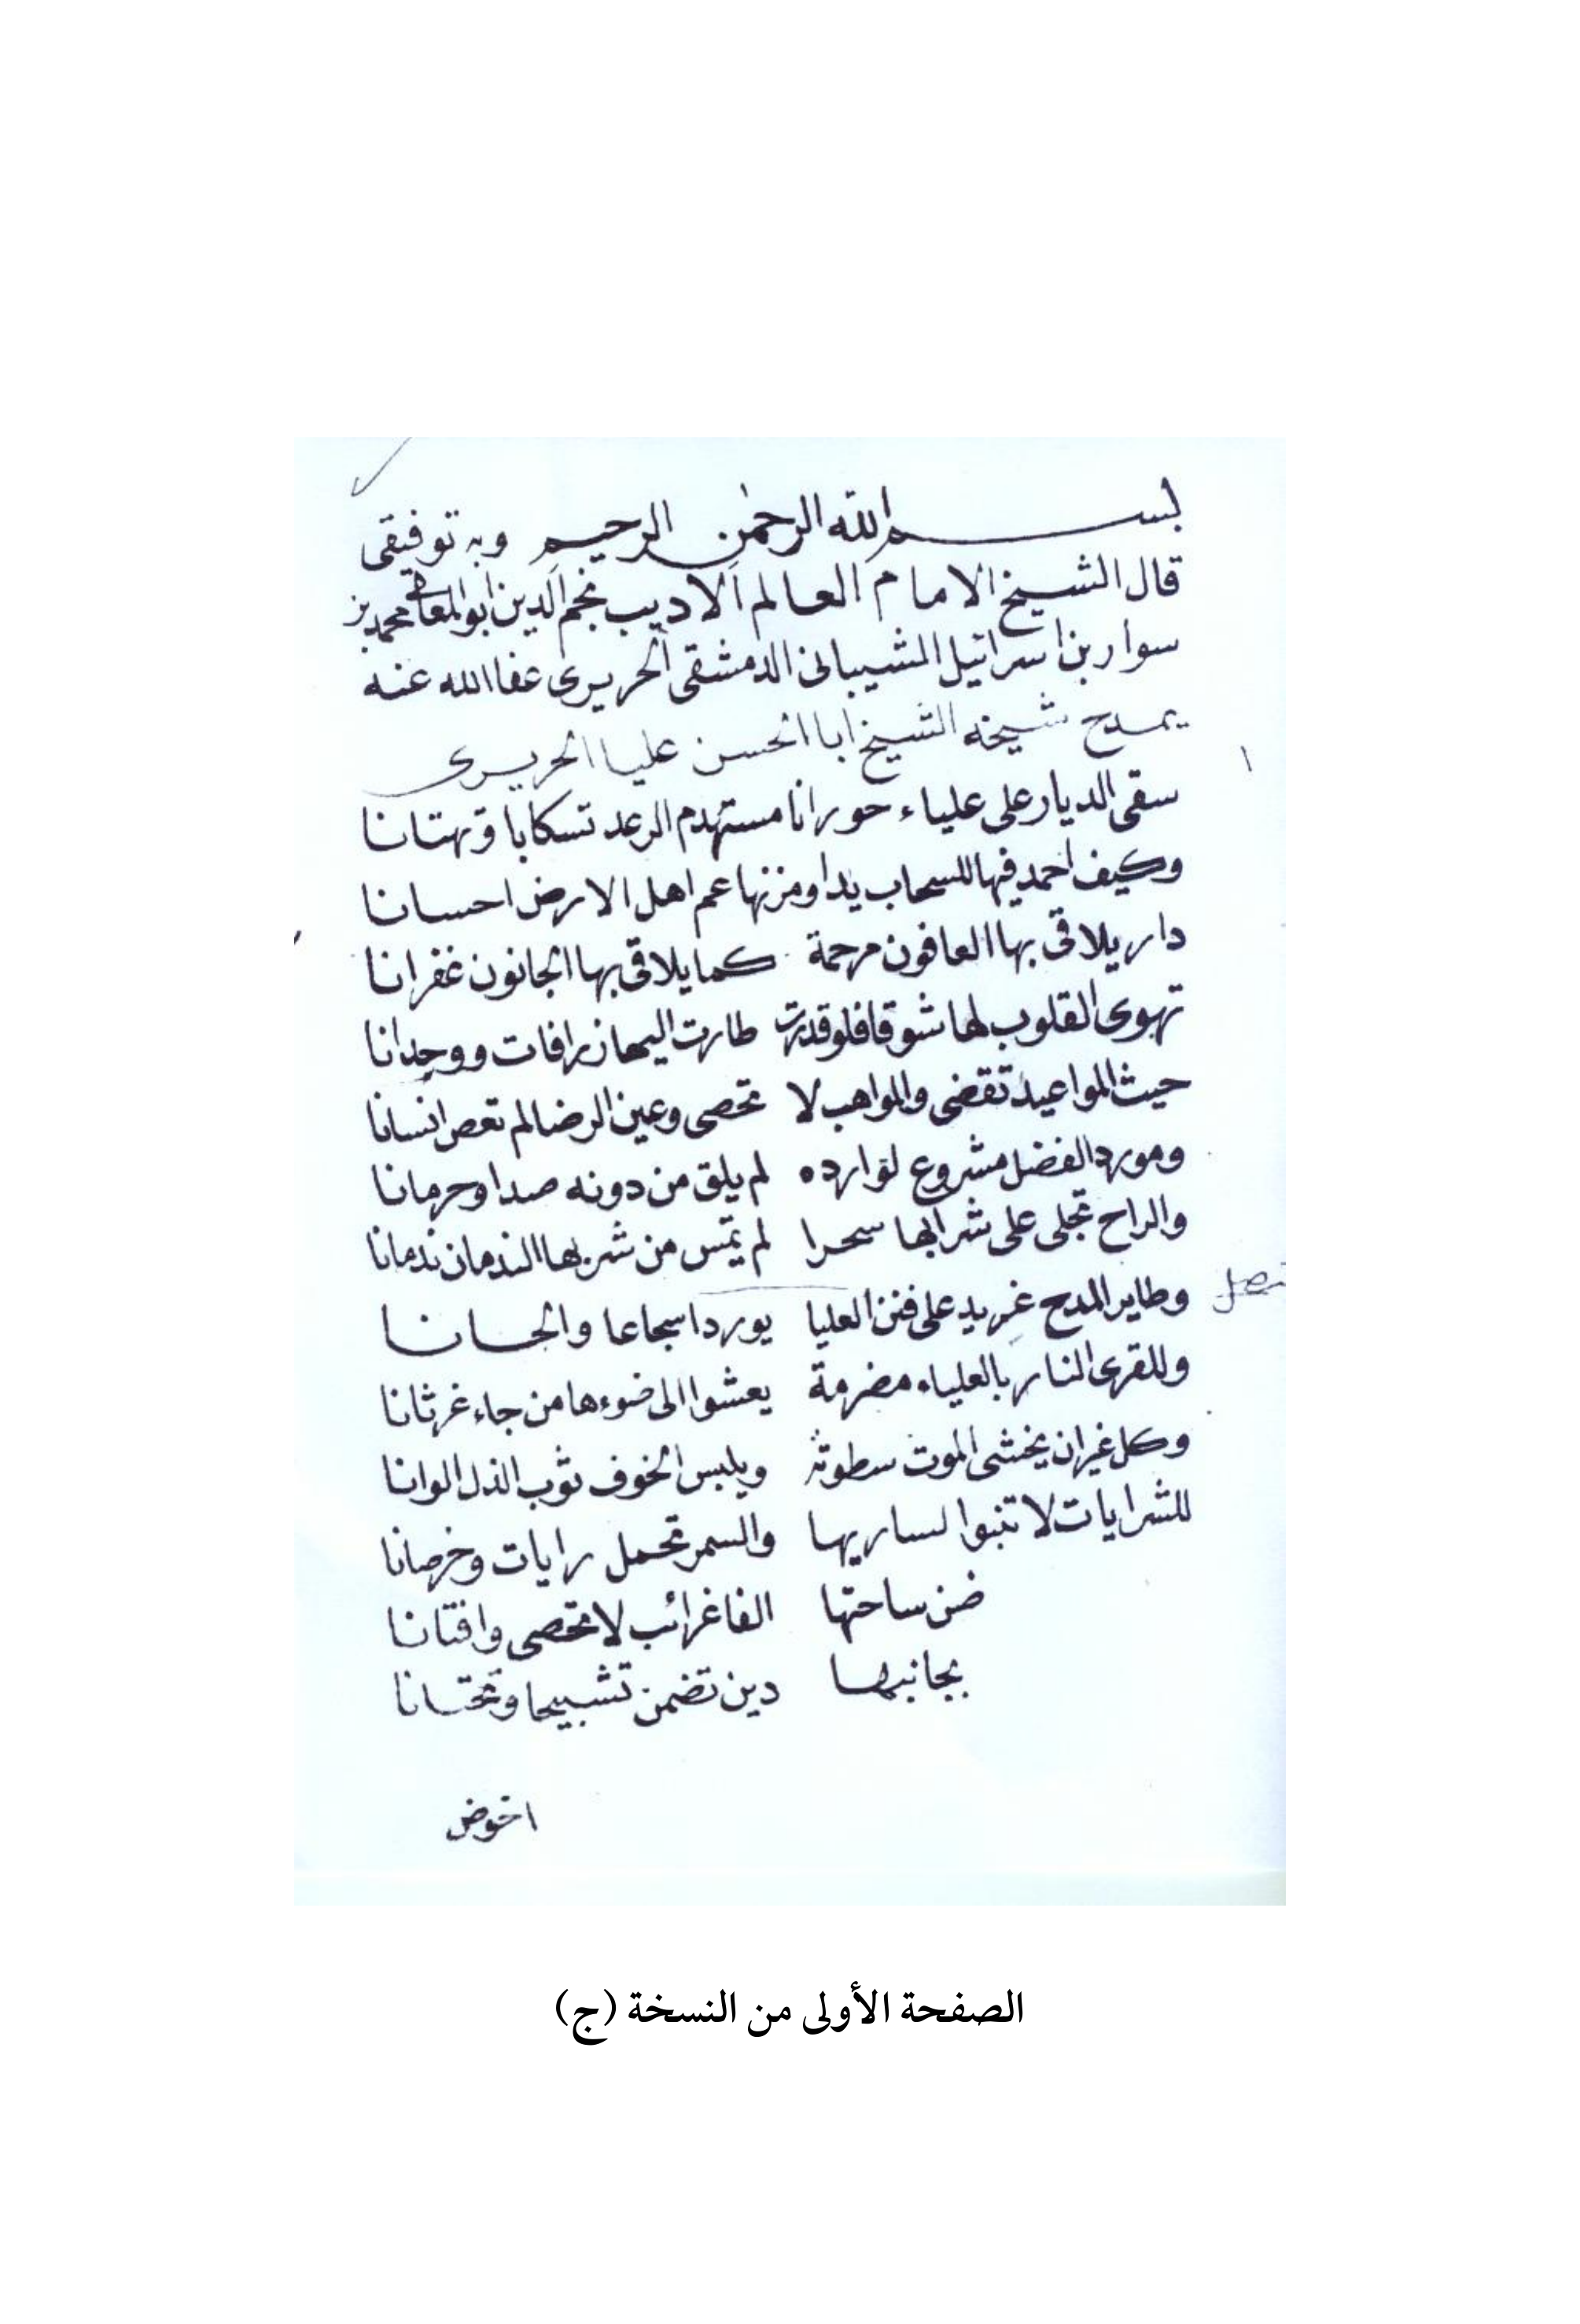 بسم الله الرحمن الرحيم وبه توفيقى
قال الشيخ الامام العالم الاديب نجم الدين ابو المعالى محمد بن
سوار بن اسرائيل الشيبانى الدمشقى الحريرى عفا الله عنه
يمدح شيخه الشيخ ابا الحسن عليا الحريرى
١
سقى الديار على علياء حورانا مستهدم الرعد تسكابا وتهتانا
وكيف احمد فيها للسحاب يدا ومزنها عم اهل الارض احسانا
دار يلاقى بها العافون مرحمة كما يلاقى بها الجانون غفرانا
تهوى القلوب لها شوقا فلو قدرت طارت اليها زرافات ووحدانا
حيث المواعيد تقضى والمواهب لا تحصى وعين الرضا لم تعص انسانا
ومورد الفضل مشروع لوارده لم يلق من دونه صدا وحرمانا
والراح تجلى على شرابها سحرا لم يمس من شربها الندمان ندمانا
وطاير المدح غريد على فنن العليا يورد اسجاعا والحانا
وللقرى النار بالعلياء مضرمة يعشوا الى ضوءها من جاء غرثانا
وكل غيران يخشى الموت سطوته ويلبس الخوف ثوب الذل الوانا
للشرايات لا تنبوا لساريها والسمر تحمل رايات وخرصانا
ضن ساحتها الفا غرائب لا تحصى وافتانا
بجانبها دين تضمن تشبيها وتحتانا
اخوض
الصفحة الأولى من النسخة (ج)